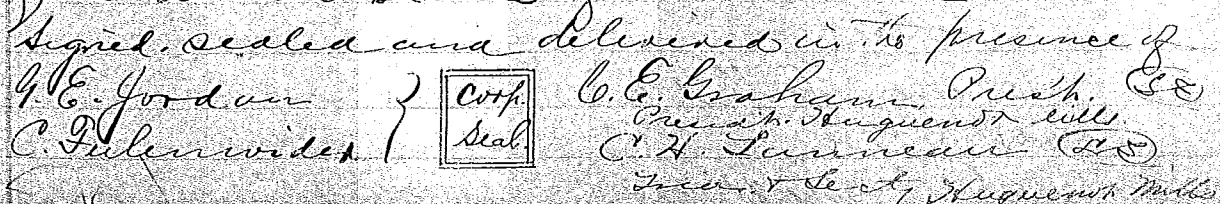 Signed, sealed and delivered in the presence of
G. E. Jordan } Corp. Seal. C. E. Graham, Prest. (LS)
Presdt. Huguenot Mills.
C. Fulenwider C. H. Lanneau (LS)
Treas. & Secty Huguenot Mills